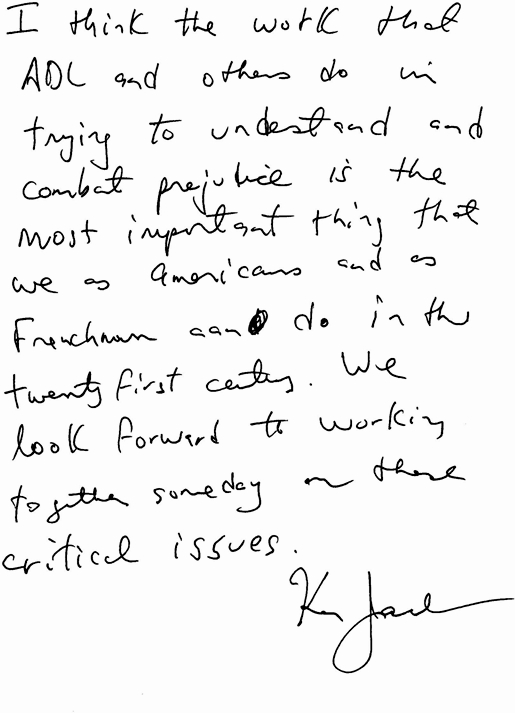 I think the work that
ADL and others do in
trying to understand and
combat prejudice is the
most important thing that
we as Americans and as
Frenchman can do in the
twenty first century. We
look forward to working
together someday on these
critical issues.
Ken